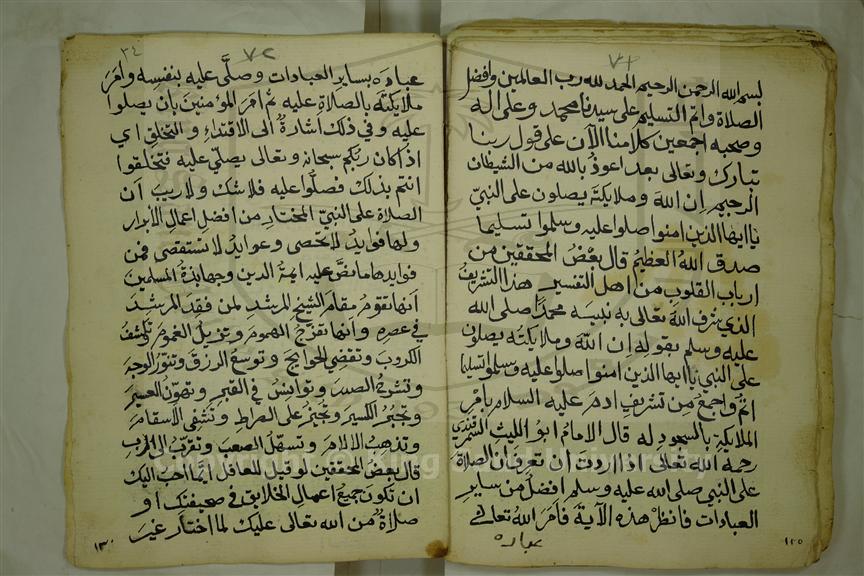 ٧١
بسم الله الرحمن الرحيم الحمد لله رب العالمين وافضل
الصلاة واتم التسليم على سيدنا محمد وعلى اله
وصحبه اجمعين كلامنا الآن على قول ربنا
تبارك وتعالى بعد اعوذ بالله من الشيطان
الرجيم ان الله وملايكته يصلون على النبيّ
ياايها الذين امنوا صلوا عليه وسلموا تسليما
صدق الله العظيم قال بعض المحققين من
ارباب القلوب من اهل التفسير هذا التشريف
الذي شرف الله تعالى به نبيه محمدا صلى الله
عليه وسلم بقوله إن الله وملايكته يصلون
على النبي ياايها الذين امنوا صلوا عليه وسلموا تسليما
اتم واجمع من تشريف ادم عليه السلام بامر
الملايكة بالسجود له قال الامام ابو الليث السمرقندي
رحمه الله تعالى اذا اردت ان تعرف ان الصلاة
على النبي صلى الله عليه وسلم افضل من ساير
العبادات فانظر هذه الآية فامر الله تعالى
عباده
١٢٥
٧٢
٣٤
عباده بساير العبادات وصلّى عليه بنفسه وامر
ملايكته بالصلاة عليه ثم امر المؤمنين بان يصلوا
عليه وفي ذلك اشارة الى الاقتداء والتخلق اي
اذا كان ربكم سبحانه وتعالى يصلّي عليه فتخلقوا
انتم بذلك فصلّوا عليه فلا شك ولا ريب ان
الصلاة على النبيّ المختار من افضل اعمال الأبرار
ولها فوايد لا تحصى وعوايد لا تستقصى فمن
فوايدها ما نصّ عليه ايمة الدين وجهابذة المسلمين
انها تقوم مقام الشيخ المرشد لمن فقد المرشد
في عصره وانها تفرّج الهموم وتزيل الغموم وتكشف
الكروب وتقضي الحوايج وتوسع الرزق وتنوّر الوجه
وتشرح الصدر وتوانس في القبر وتهوّن العسير
وتجبر الكسير وتجيز على الصراط وتشفي الاسقام
وتذهب الالام وتسهّل الصعب وتقرب الى الرب
قال بعض المحققين لو قيل للعاقل ايّما احب اليك
ان تكون جميع اعمال الخلايق في صحيفتك او
صلاة من الله تعالى عليك لما اختار غير
١٣٠